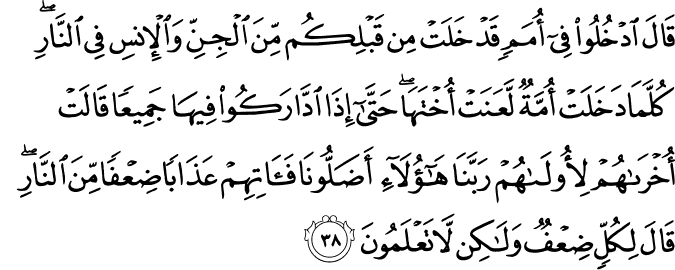 قَالَ ٱدْخُلُوا۟ فِىٓ أُمَمٍ قَدْ خَلَتْ مِن قَبْلِكُم مِّنَ ٱلْجِنِّ وَٱلْإِنسِ فِى ٱلنَّارِ ۖ
كُلَّمَا دَخَلَتْ أُمَّةٌ لَّعَنَتْ أُخْتَهَا ۖ حَتَّىٰٓ إِذَا ٱدَّارَكُوا۟ فِيهَا جَمِيعًا قَالَتْ
أُخْرَىٰهُمْ لِأُولَىٰهُمْ رَبَّنَا هَـٰٓؤُلَآءِ أَضَلُّونَا فَـَٔاتِهِمْ عَذَابًا ضِعْفًا مِّنَ ٱلنَّارِ ۖ
قَالَ لِكُلٍّ ضِعْفٌ وَلَـٰكِن لَّا تَعْلَمُونَ ٣٨